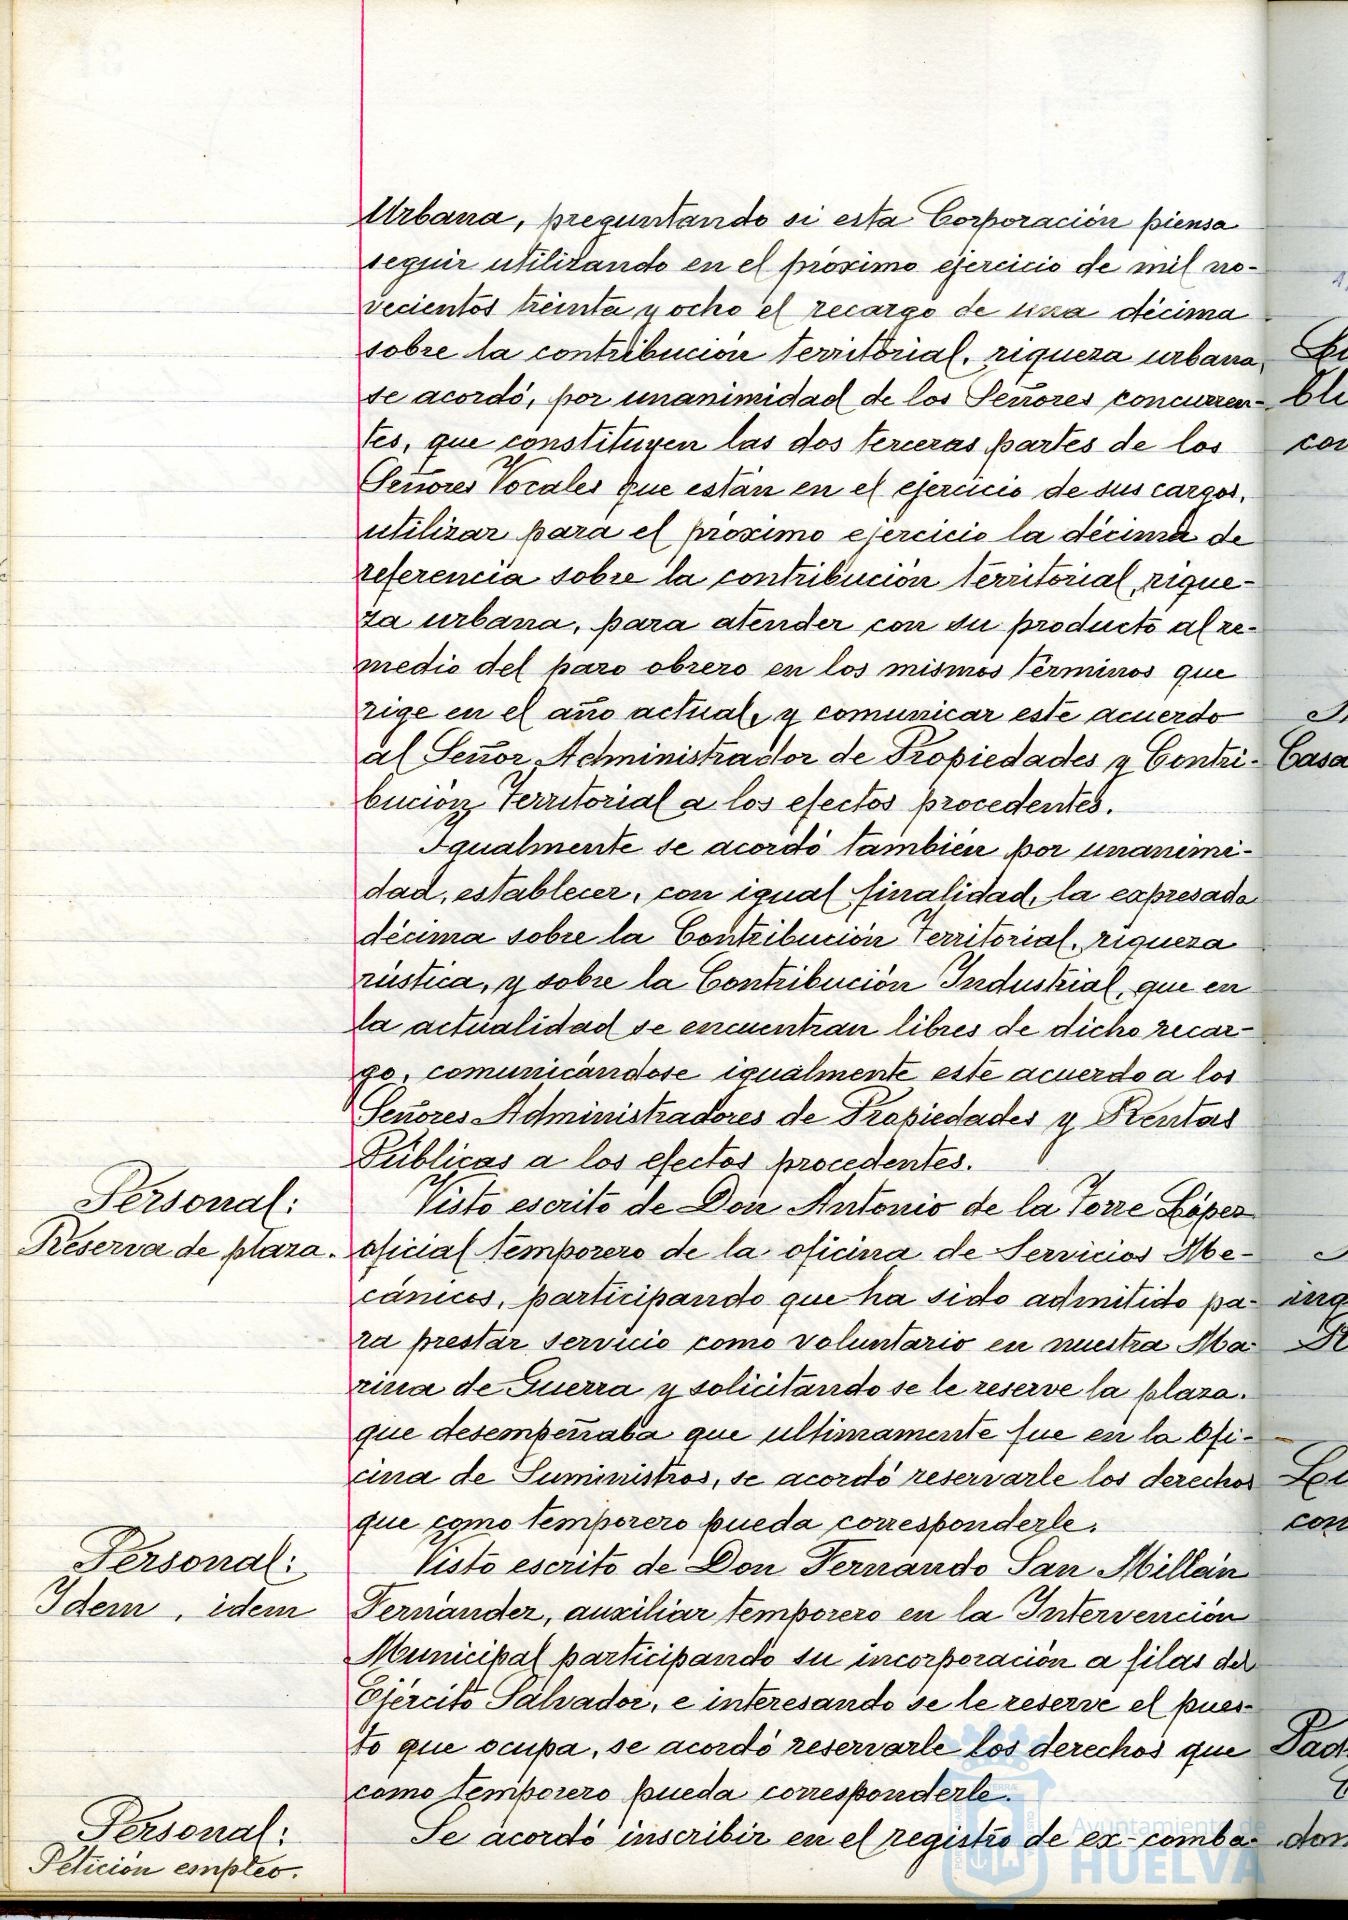 Urbana, preguntando si esta Corporación piensa
seguir utilizando en el próximo ejercicio de mil no-
vecientos treinta y ocho el recargo de una décima
sobre la contribución territorial, riqueza urbana,
se acordó, por unanimidad de los Señores concurren-
tes, que constituyen las dos terceras partes de los
Señores Vocales que están en el ejercicio de sus cargos,
utilizar para el próximo ejercicio la décima de
referencia sobre la contribución territorial, rique-
za urbana, para atender con su producto al re-
medio del paro obrero en los mismos términos que
rige en el año actual, y comunicar este acuerdo
al Señor Administrador de Propiedades y Contri-
bución Territorial a los efectos procedentes.
Igualmente se acordó también por unanimi-
dad, establecer, con igual finalidad, la expresada
décima sobre la Contribución Territorial, riqueza
rústica, y sobre la Contribución Industrial, que en
la actualidad se encuentran libres de dicho recar-
go, comunicándose igualmente este acuerdo a los
Señores Administradores de Propiedades y Rentas
Públicas a los efectos procedentes.
Personal:
Reserva de plaza.
Visto escrito de Don Antonio de la Torre López
oficial temporero de la oficina de Servicios Me-
cánicos, participando que ha sido admitido pa-
ra prestar servicio como voluntario en nuestra Ma-
rina de Guerra y solicitando se le reserve la plaza.
que desempeñaba que ultimamente fue en la Ofi-
cina de Suministros, se acordó reservarle los derechos
que como temporero pueda corresponderle.
Personal:
Idem, idem
Visto escrito de Don Fernando San Millán
Fernández, auxiliar temporero en la Intervención
Municipal participando su incorporación a filas del
Ejército Salvador, e interesando se le reserve el pues-
to que ocupa, se acordó reservarle los derechos que
como temporero pueda corresponderle.
Personal:
Petición empleo.
Se acordó inscribir en el registro de ex-comba-
Casa
Ayuntamiento de
HUELVA